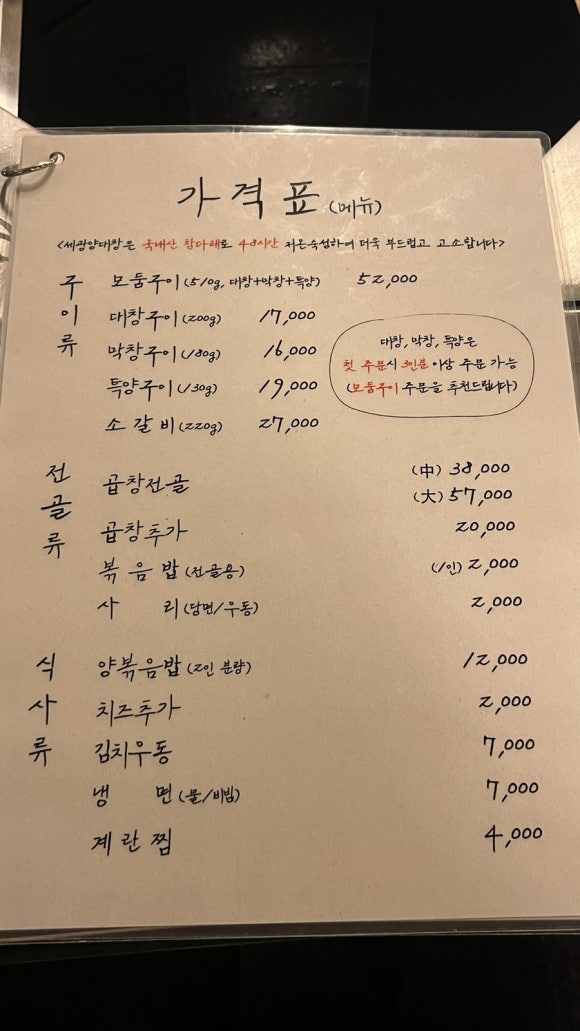 가격표 (메뉴)
<세광양대창은 국내산 참다래로 48시간 저온숙성하여 더욱 부드럽고 고소합니다>
구이류
모둠구이 (510g, 대창+막창+특양) 52,000
대창구이 (200g) 17,000
막창구이 (180g) 16,000
특양구이 (130g) 19,000
소갈비 (220g) 27,000
대창, 막창, 특양은
첫 주문시 3인분 이상 주문 가능
(모둠구이 주문을 추천드립니다)
전골류
곱창전골 (中) 38,000
(大) 57,000
곱창추가 20,000
볶음밥 (전골용) (1인) 2,000
사리 (당면/우동) 2,000
식사류
양볶음밥 (2인 분량) 12,000
치즈추가 2,000
김치우동 7,000
냉면 (물/비빔) 7,000
계란찜 4,000